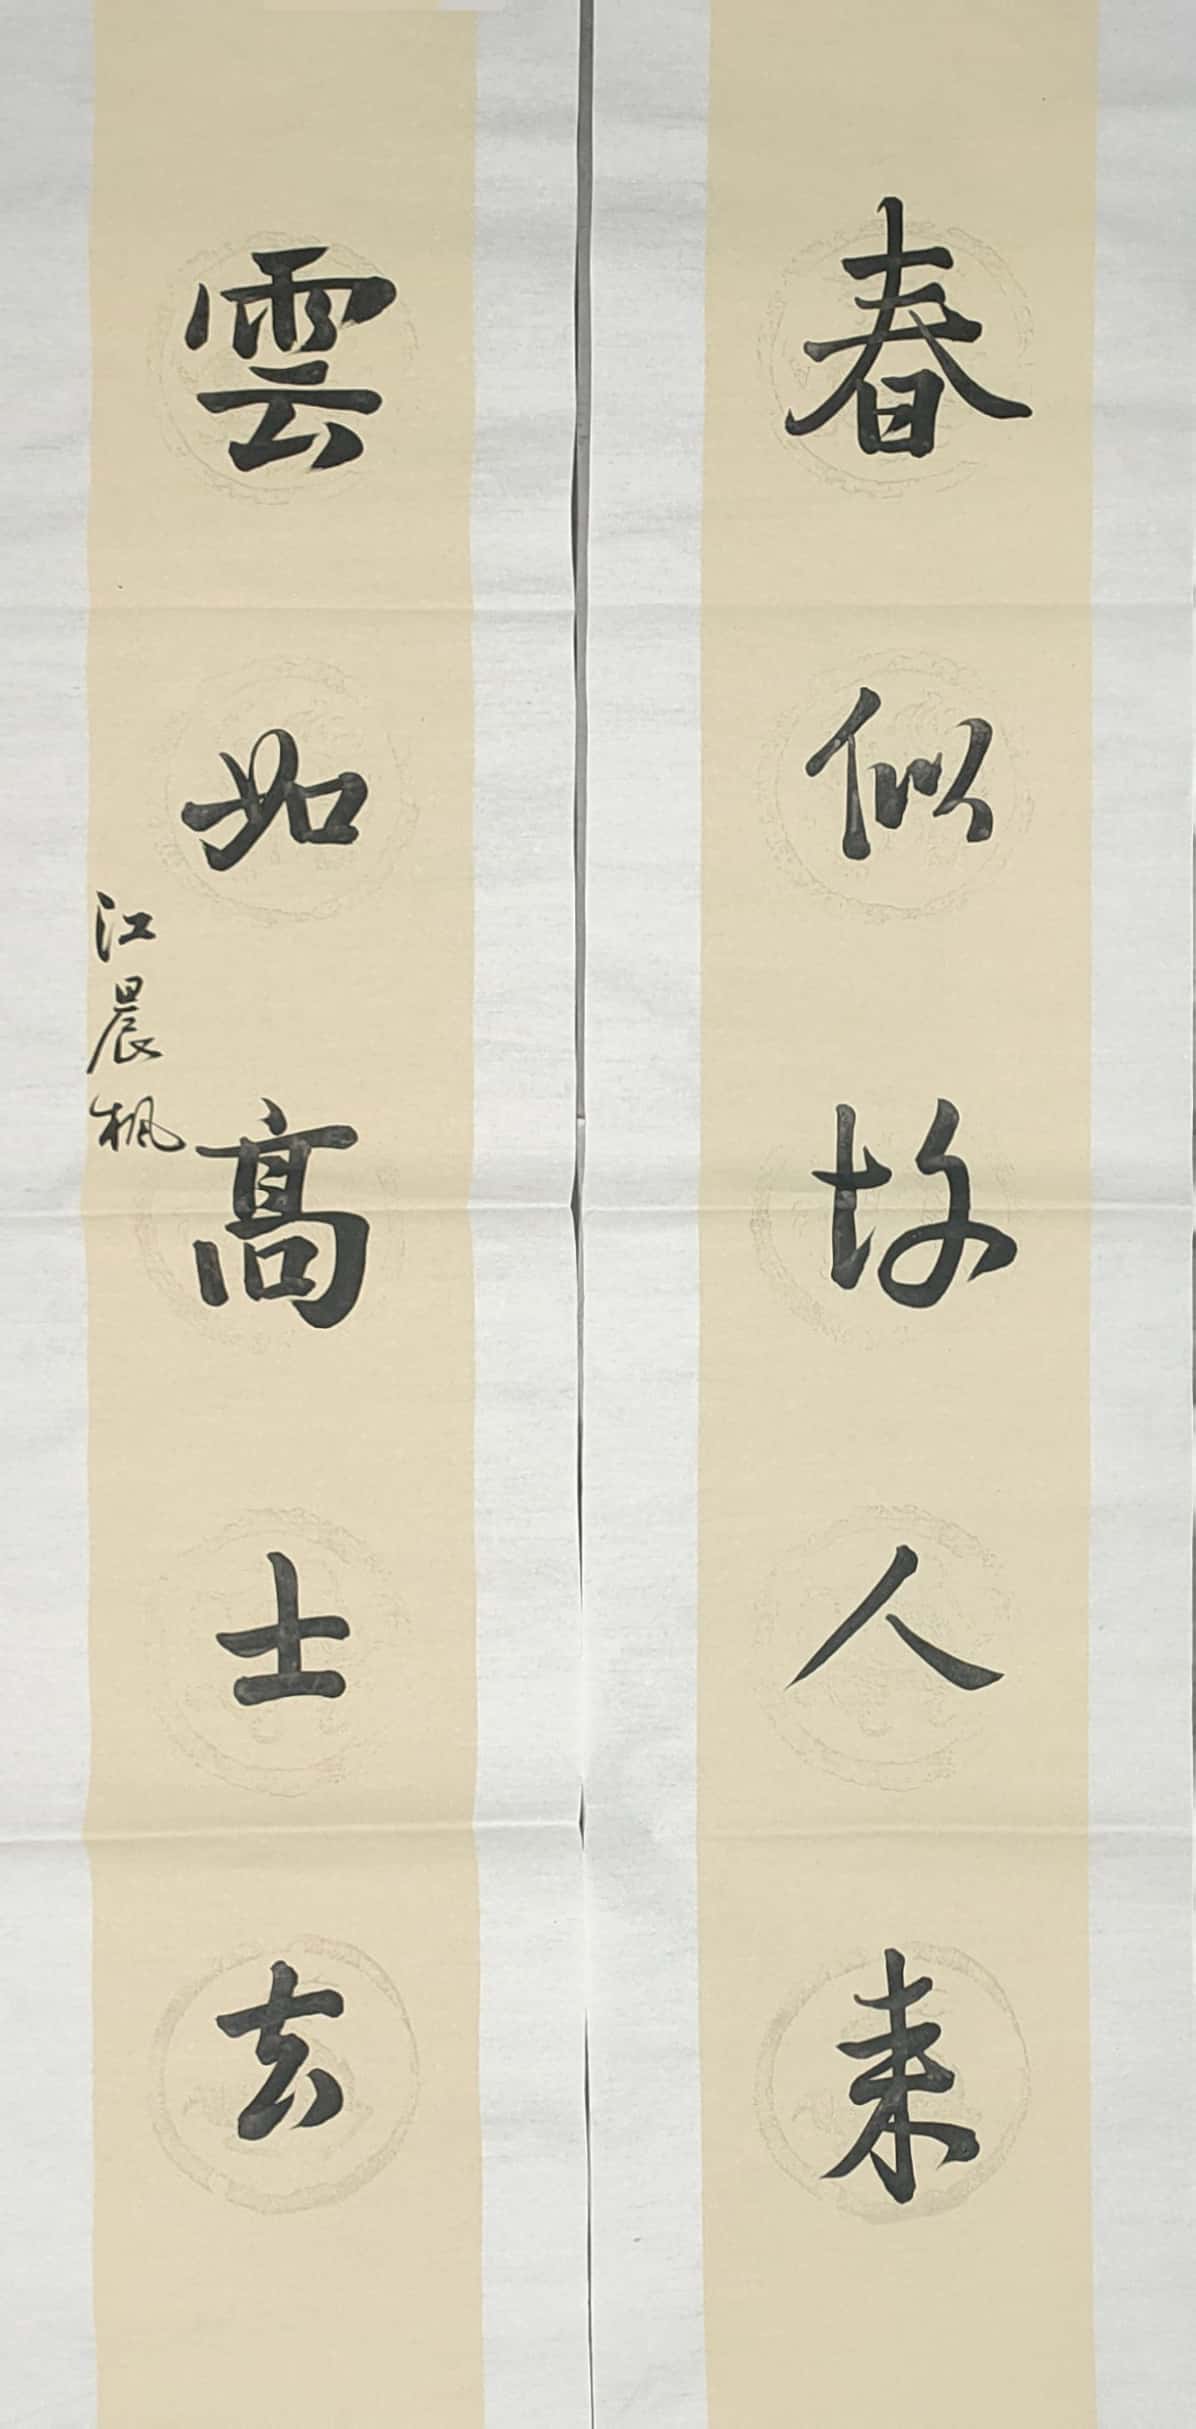 春似故人来
雲如高士去
江晨楓